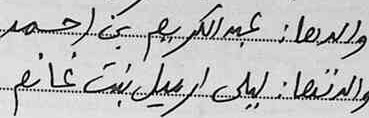 والدها: عبد الكريم بن احمد
والدتها: ليلى اربيل بنت غانم